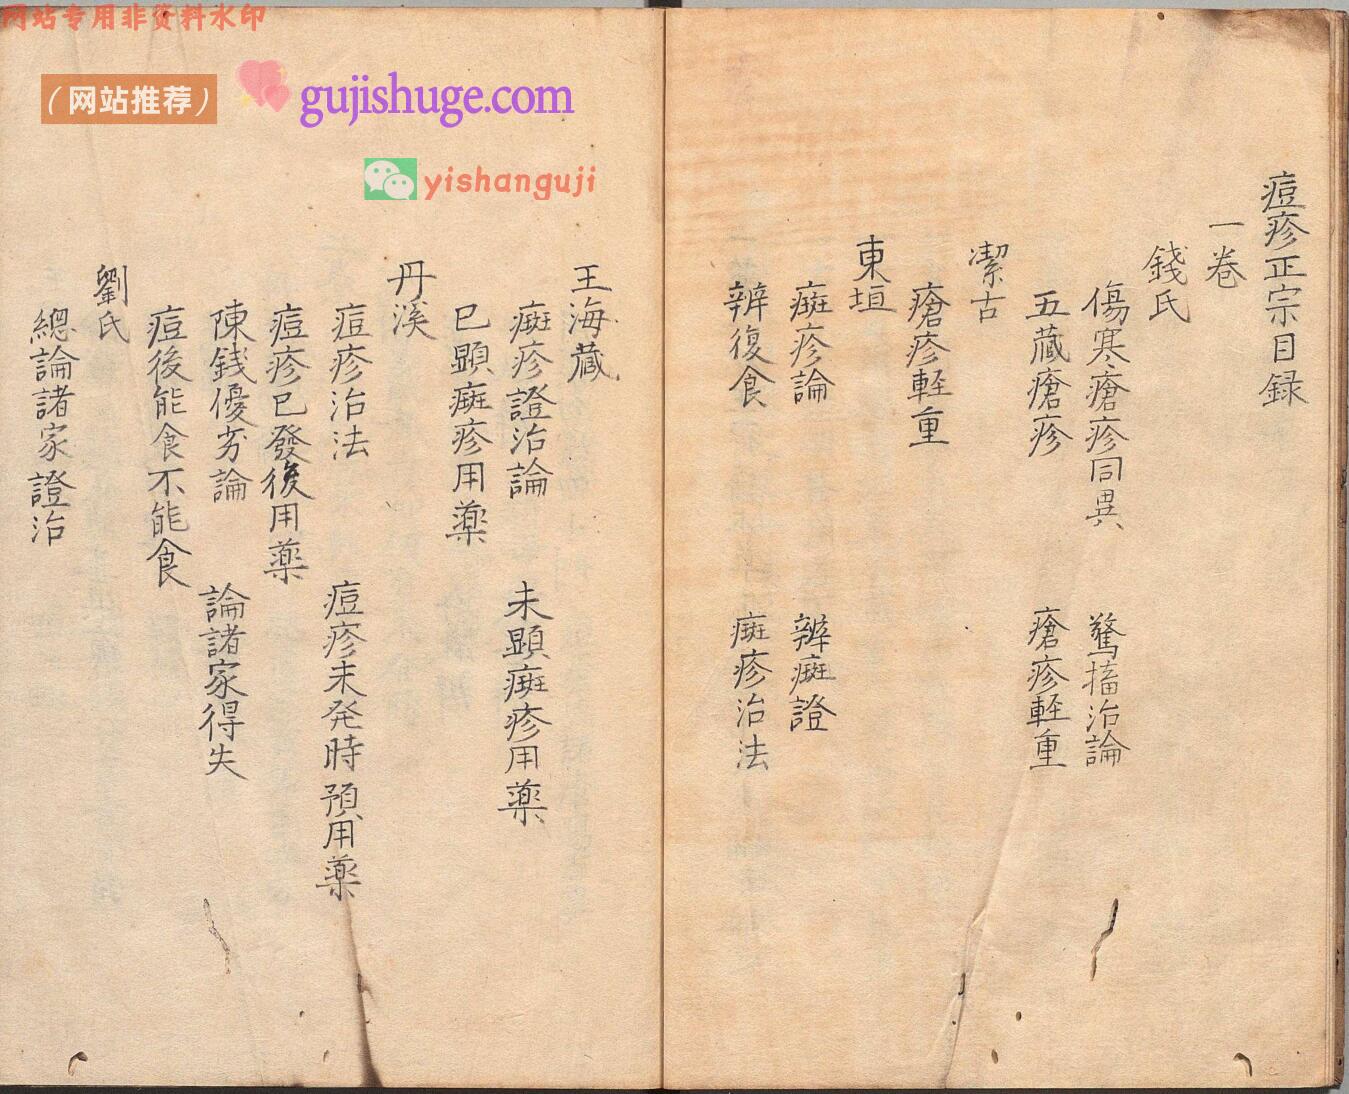 网站专用非资料水印
（网站推荐）
gujishuge.com
yishanguji
痘疹正宗目録
一卷
錢氏
傷寒瘡疹同異 驚搐治論
五藏瘡疹 瘡疹軽重
潔古
瘡疹軽重
東垣
癍疹論 辨癍證
辨復食 癍疹治法
王海藏
癍疹證治論 未顕癍疹用藥
已顕癍疹用藥
丹溪
痘疹治法 痘疹未発時預用薬
痘疹已發後用薬
陳錢優劣論 論諸家得失
痘後能食不能食
劉氏
總論諸家證治